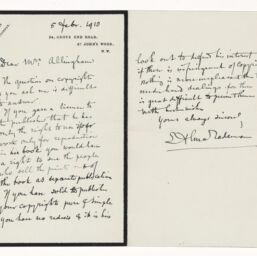 5 Febr. 1910
34, GROVE END ROAD,
ST JOHN'S WOOD,
N.W.
Dear Mrs Allingham
The question on copyright
you ask me is difficult
to answer
If you gave a licence to
publisher that he has
only the right to use for
work only for reproduction
in his book you would have
a right to sue the people
who sell the prints out of
the book as separate publication
If you have sold to publisher
your copyright pure & simple
you have no redress & it is his
look out to defend his interest
if there is infringement of copyright
nothing is more unpleasant than
underhand dealings for there
is great difficult to prevent them
Yours always sincerely
L Alma Tadema